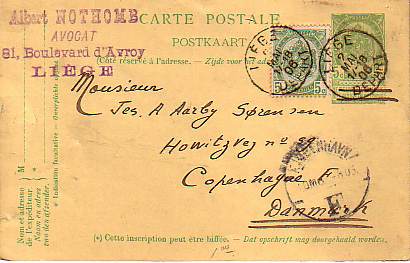 Albert NOTHOMB
AVOCAT
81, Boulevard d'Avroy
LIÉGE
CARTE POSTALE
POSTKAART
(Côté réservé à l'adresse. — Zijde voor het adres
LIEGE
DEPART
5c 5c
LIEGE
DEPART
5c
Monsieur
Jes. A Aarby Sørensen
Howitzvej no 49
Copenhague F.
Danmark
KJØBENHAVN
F.
M
Nom et adresse
de l'expéditeur
Naam en adres
van den afzender.
* Indication facultative
(*) Cette inscription peut être biffée. — Dat opschrift mag doorgehaald worden.